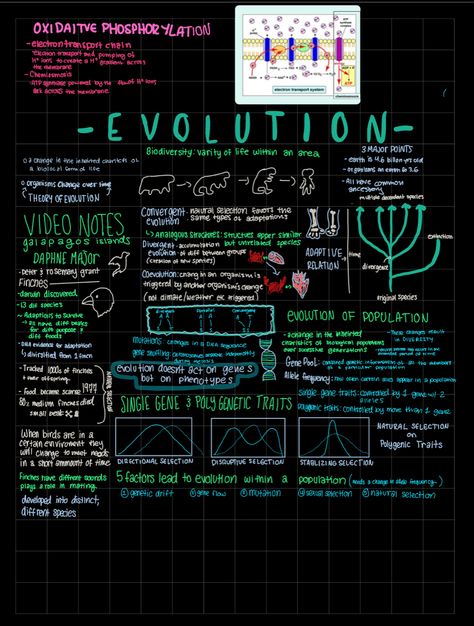 OXIDAITVE PHOSPHORYLATION
- electron transport chain
- Electron transport and pumping of
H+ ions to create a H+ gradient across
the membrane
- Chemiosmosis
- ATP synthase powered by the flow of H+ ions
back across the membrane
electron transport system
chemiosmosis
- EVOLUTION -
Biodiversity: varity of life within an area
a change in the inherited charactics of
a biological form of life
organisms change over time
THEORY OF EVOLUTION
3 MAJOR POINTS
- earth is 4.6 billion yrs old
- organisms on earth to 3.5
- All have common
ancestory
multiple decendent species
extinction
time
divergence
original species
VIDEO NOTES
galapagos islands
DAPHNE MAJOR
- Peter & rosemary grant
Finches
- darwin discovered
- 13 dif species
- Adaptations to survive
have diff beaks
for diff purpose &
diff foods
- DNA evidence for adaptation
diversified from 1 each
- Tracked 1000s of finches
& their offspring
- Food became scarse 1977
80% medium finches died
small beaks
NATURAL SELECTION
When birds are in a
certain enviorment they
will change to meet needs
in a short ammount of time
Finches have different sounds
plays a role in mating
developed into distinct,
different species
Convergent evolution: natural selection favors the
same types of adaptations
Analogous structures: structures apper similar
but unrelated species
Divergent evolution: accumulation
of diff between groups
(creation of new species)
Coevolution: change in an organism is
triggered by another organisms change
(not climate/weather etc triggered)
ADAPTIVE
RELATION
Divergent
Parallel
Convergent
mutations changes in a DNA sequence
gene shuffling: chromosomes assort independently
during meiosis
evolution doesnt act on genes
but on phenotypes
EVOLUTION OF POPULATION
- a change in the inherited
charactistics of biological populations
over sucessive generations
- These changes result
in DIVERSITY
Gene Pool: combined genetic information of all the members
of a particular population
Allele frequency: how often certain alles appear in a population
single gene traits: controlled by 1 gene w/ 2
alleles
Polygenic traits: controlled by more than 1 gene
SINGLE GENE & POLYGENETIC TRAITS
NATURAL SELECTION
on
Polygenic Traits
DIRECTIONAL SELECTION
DISRUPTIVE SELECTION
STABLIZING SELECTION
5 factors lead to evolution within a population (needs a change in allele frequency)
① genetic drift
② gene flow
③ mutation
④ sexual selection
⑤ natural selection